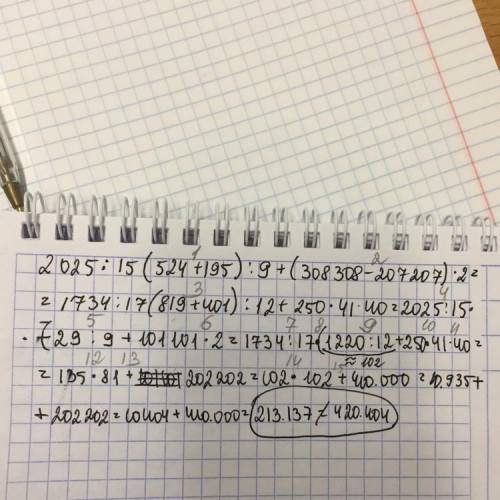 2025:15(524+195):9+(308308-207207)·2=
=1734:17(819+401):12+250·41·40=2025:15·
·729:9+101101·2=1734:17·(1220:12+250·41·40=
≈102
=135·81+202202=102·102+410.000=10.935+
+202202=10404+410.000=213.137≠420.404